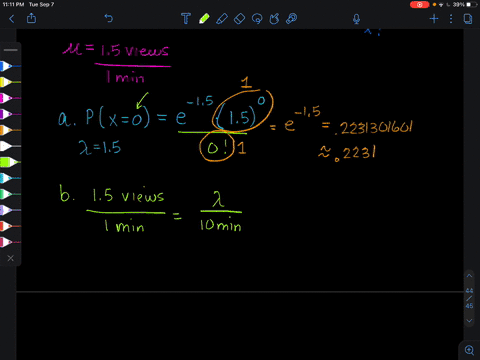 11:11 PM Tue Sep 7
39%
μ = 1.5 views
1 min
1
a. P(x=0) = e^-1.5 · (1.5)^0 = e^-1.5 = .2231301601
λ=1.5
0! 1
≈ .2231
b. 1.5 views = λ
1 min 10min
44
/
45